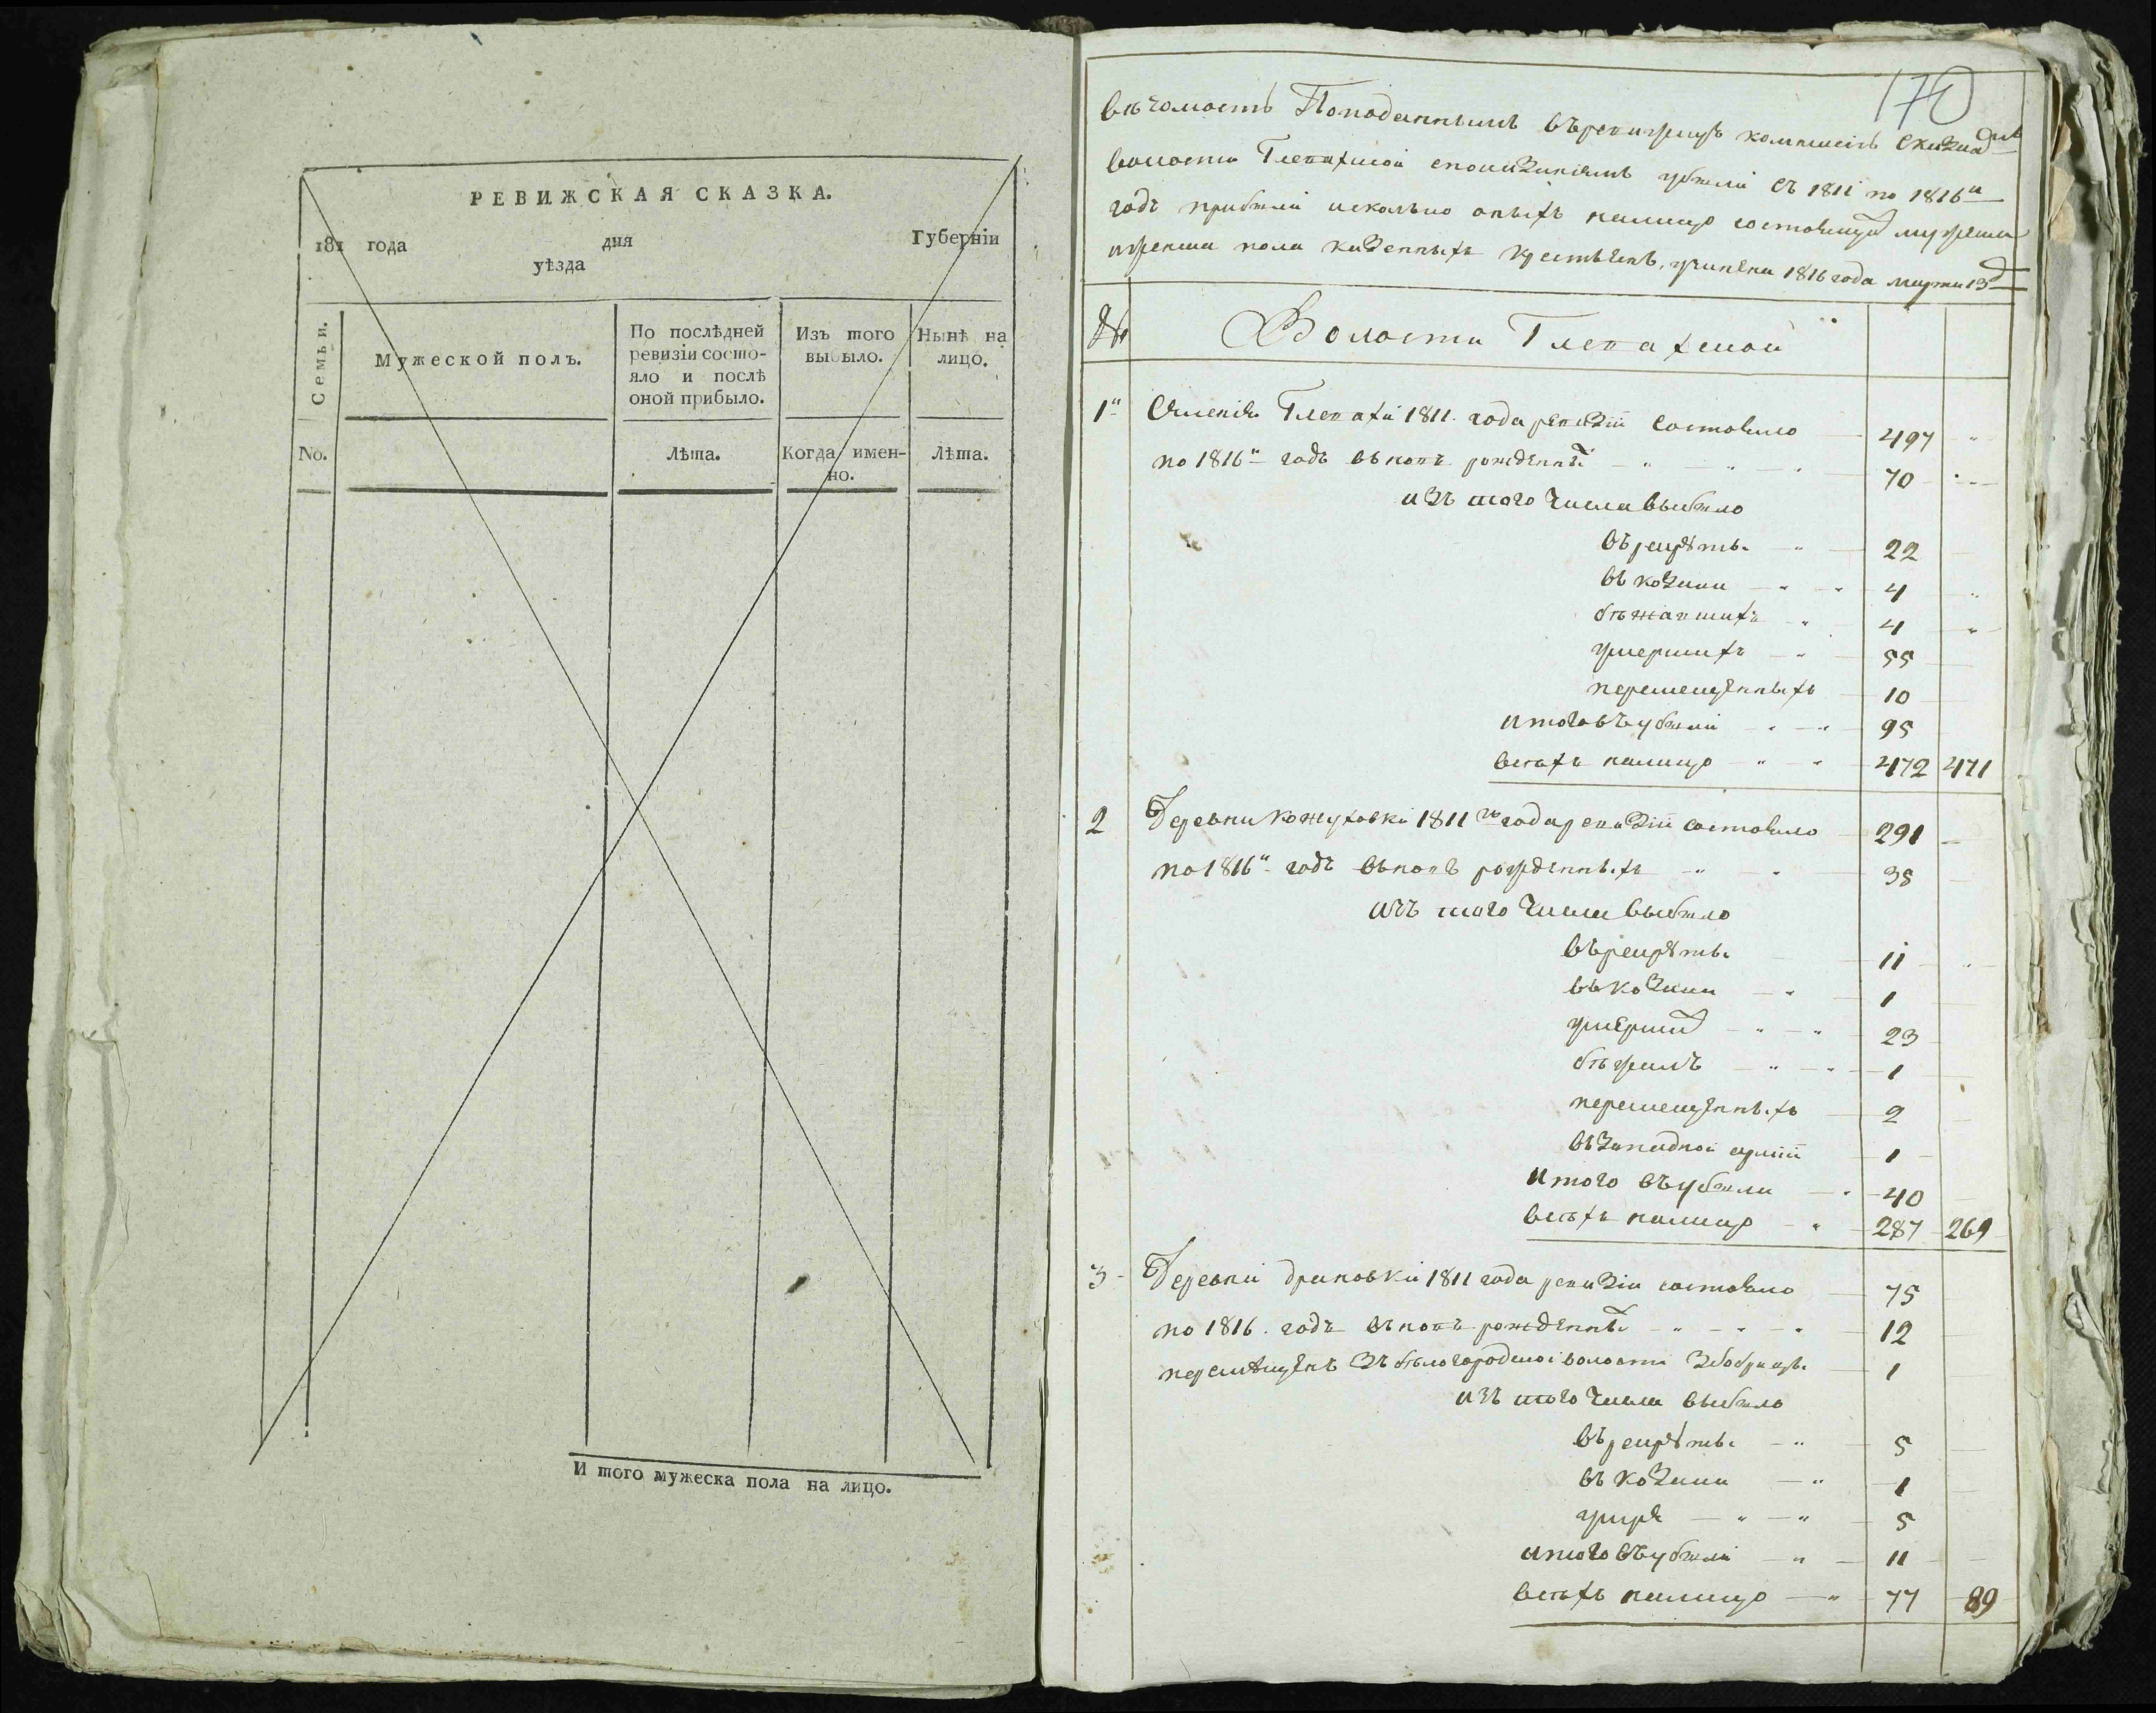 РЕВИЖСКАЯ СКАЗКА.
181 года дня Губерніи
уѣзда
Семьи.
Мужеской полъ.
По послѣдней
ревизіи состо-
яло и послѣ
оной прибыло.
Изъ того
выбыло.
Нынѣ на
лицо.
No.
Лѣта.
Когда имен-
но.
Лѣта.
И того мужеска пола на лицо.
170
вѣдомость Поподаннымъ въ комисіѣ
волости Глевахской убыли съ 1811 по 1816й
годъ прибыли исколько оныхъ налицо состоящих мужеска
иженска пола казенныхъ крестьянъ, учинена 1816 года марта 13 д
№ Волости Глевахской
1й Селенія Глевахи 1811. года ревизіи состояло 497
по 1816й годъ вновь рожденны 70
изъ того числа выбыло
въ рекруты 22
въ козаки 4
бѣжавшихъ 4
умершихъ 55
перемещенныхъ 10
итого въ убыли 95
всехъ налицо 472 471
2 Деревни Кожуховки 1811го года ревизіи состояло 291
по 1816й годъ вновь рожденныхъ 35
изъ того числа выбыло
въ рекруты 11
въ козаки 1
умерших 23
бѣжалъ 1
перемещенныхъ 2
въ западной арміи 1
итого въ убыли 40
всехъ налицо 287 269
3 Деревни 1811 года ревизіи состояло 75
по 1816. годъ вновь рожденны 12
перемѣщенъ зъ бѣлогородской волости 1
изъ того числа выбыло
въ рекруты 5
въ козаки 1
умре 5
итого въ убыли 11
всехъ налицо 77 89